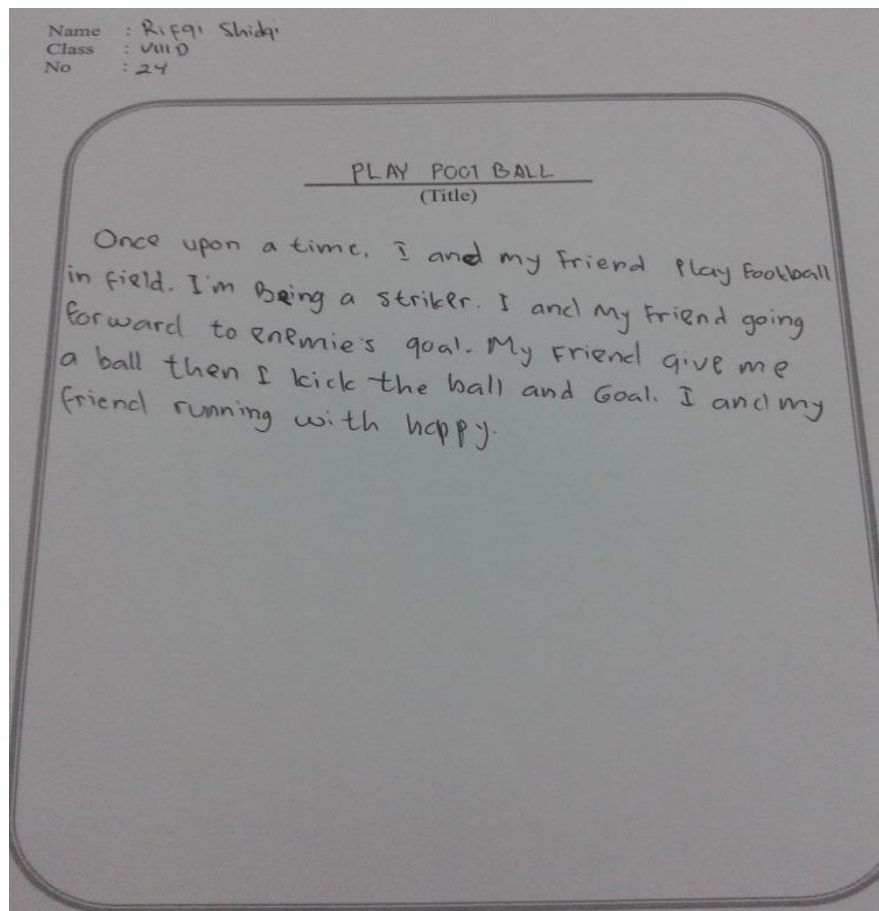 Name : Rifqi Shidqi
Class : VIII D
No : 24
PLAY FOOT BALL
(Title)
Once upon a time, I and my friend play football
in field. I'm Being a striker. I and my friend going
forward to enemie's goal. My friend give me
a ball then I kick the ball and Goal. I and my
friend running with happy.